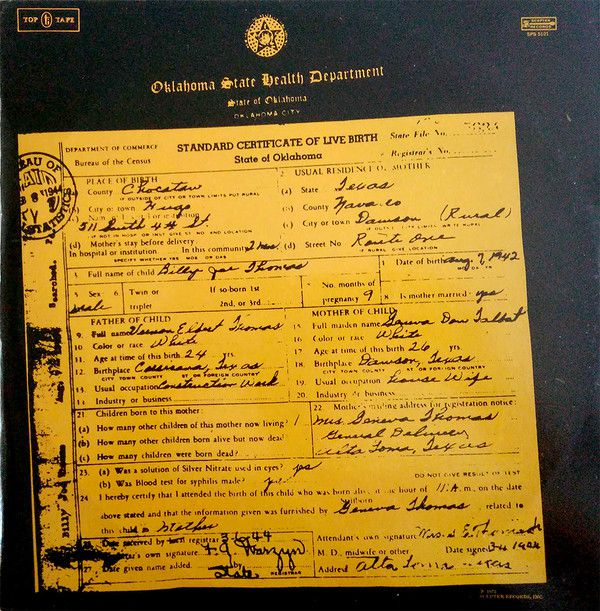 TOP TAPE
SCEPTER
RECORDS
SPS 5101
Oklahoma State Health Department
State of Oklahoma
OKLAHOMA CITY
DEPARTMENT OF COMMERCE
Bureau of the Census
STANDARD CERTIFICATE OF LIVE BIRTH
State of Oklahoma
State File No.
Registrar's No.
1944
Searched.
Billy Joe
PLACE OF BIRTH
County Choctaw
IF OUTSIDE OF CITY OR TOWN LIMITS PUT RURAL
City or town Hugo
511 South 4th St
IF NOT IN HOSP OR INST GIVE ST. NO. AND LOCATION
(d) Mother's stay before delivery
In hospital or institution In this community 2 mos.
SPECIFY WHETHER YRS MOS OR DAS
2 USUAL RESIDENCE OF MOTHER
(a) State Texas
(b) County Navarro
(c) City or town Dawson (Rural)
(d) Street No Route One
IF RURAL GIVE LOCATION
3 Full name of child Billy Joe Thomas
4 Date of birth Aug. 7, 1942
MO DA YR
5 Sex male
6 Twin or triplet
If so-born 1st 2nd, or 3rd
No. months of pregnancy 9
8 Is mother married yes
FATHER OF CHILD
9. Full name Vernon Elbert Thomas
10 Color or race White
11. Age at time of this birth 24 yrs.
12. Birthplace Corsicana, Texas
CITY TOWN COUNTY ST OR FOREIGN COUNTRY
13. Usual occupation Construction Work
14 Industry or business
MOTHER OF CHILD
15 Full maiden name Geneva Dow Talbot
16. Color or race White
17. Age at time of this birth 26 yrs.
18. Birthplace Dawson, Texas
CITY TOWN COUNTY ST OR FOREIGN COUNTRY
19. Usual occupation House Wife
20. Industry or business
21 Children born to this mother:
(a) How many other children of this mother now living? 1
(b) How many other children born alive but now dead
(c) How many children were born dead?
22 Mother's mailing address for registration notice:
Mrs. Geneva Thomas
General Delivery
Alta Loma, Texas
23. (a) Was a solution of Silver Nitrate used in eyes? yes
(b) Was Blood test for syphilis made? yes
DO NOT GIVE RESULT OF TEST
24 I hereby certify that I attended the birth of this child who was born alive at the hour of 11:A.m. on the date
above stated and that the information given was furnished by Geneva Thomas, related to
this child as Mother
Date received by registrar 3/6/44
Registrar's own signature
27 Date given name added by State REGISTRAR
Attendant's own signature
M. D., midwife or other Date signed
Address Alta Loma Texas
P 1972
SCEPTER RECORDS, INC.